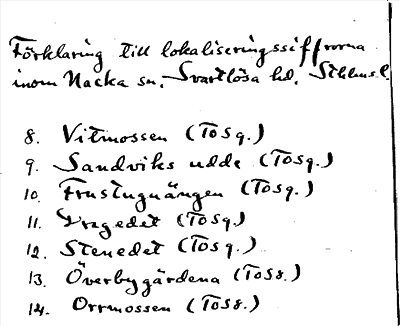 Förklaring till lokaliseringssiffrorna
inom Nacka sn. Svartlösa hd. Sthlms l.
8. Vitmossen (TOSq.)
9. Sandviks udde (TOSq.)
10. Frustuguängen (TOSq.)
11. Dragedet (TOSq.)
12. Stenedet (TOSq.)
13. Överbygärdena (TOS8.)
14. Orrmossen (TOS8.)